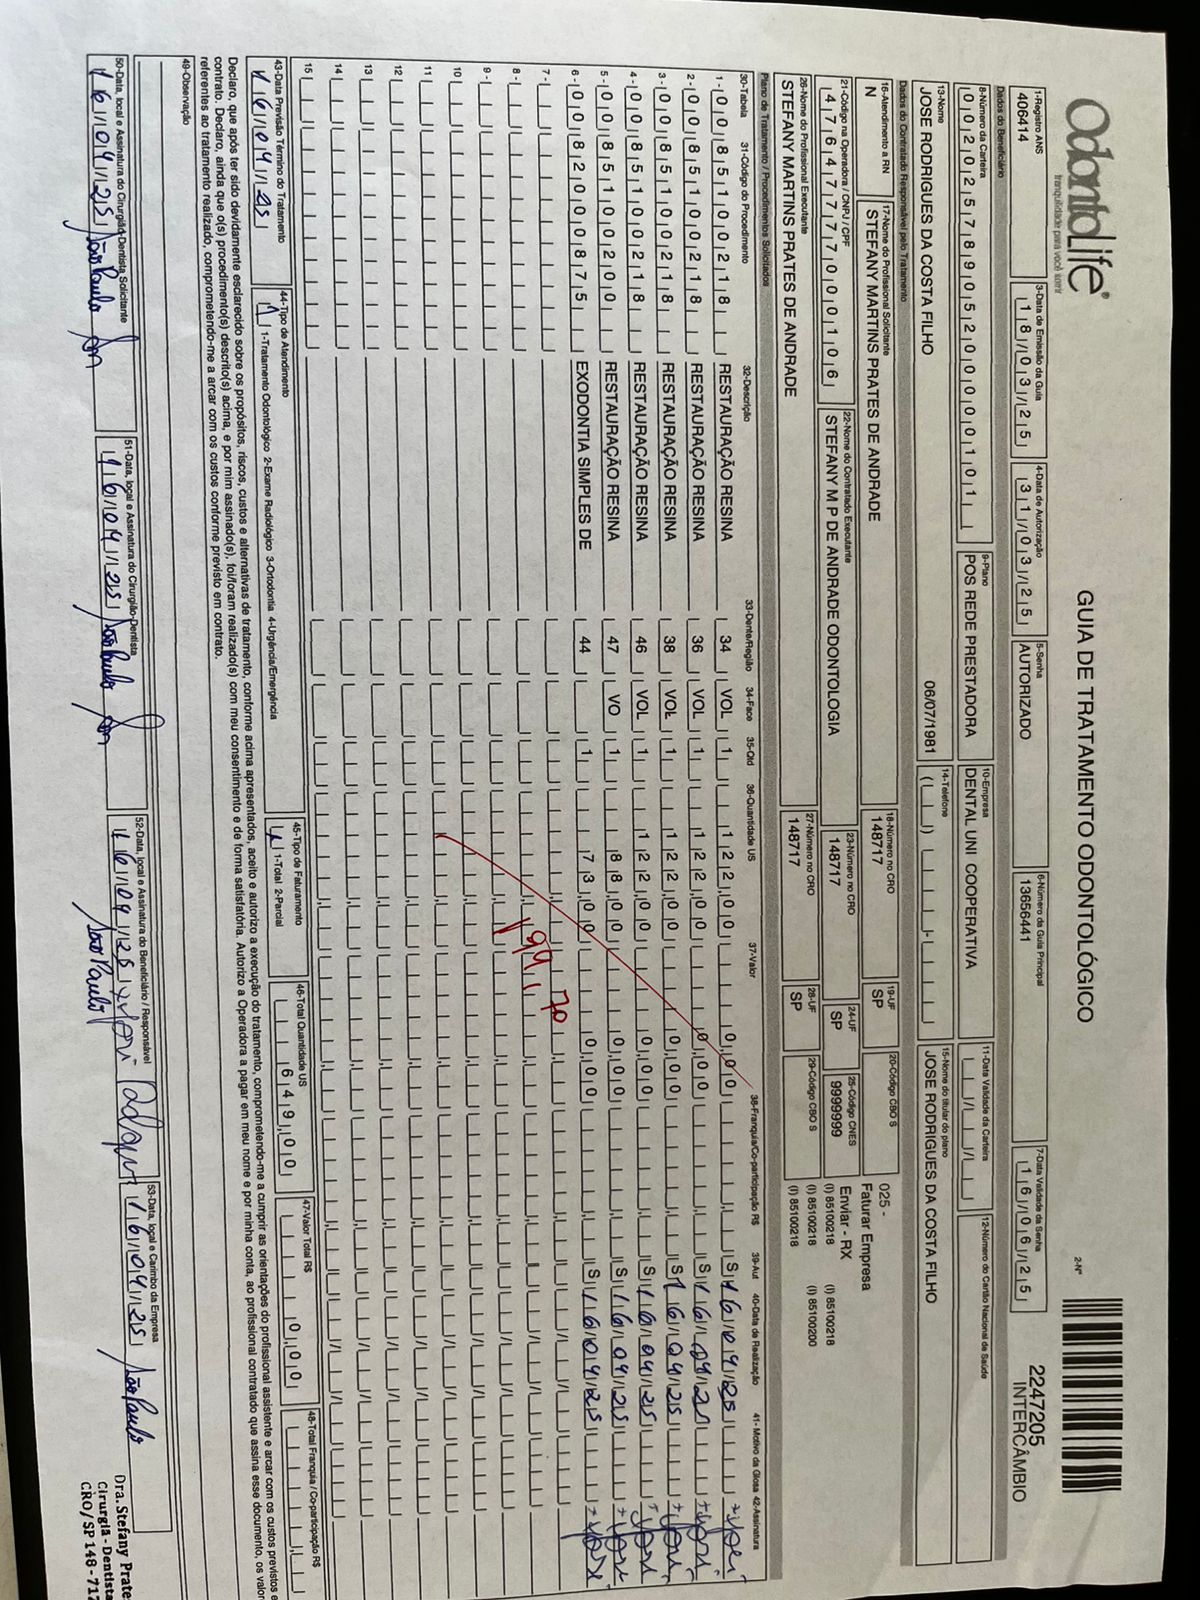 OdontoLife®
tranquilidade para você sorrir
GUIA DE TRATAMENTO ODONTOLÓGICO
2-Nº
2247205
INTERCÂMBIO
1-Registro ANS 3-Data de Emissão da Guia 4-Data de Autorização 5-Senha 6-Número da Guia Principal 7-Data Validade da Senha
406414 18/03/25 31/03/25 AUTORIZADO 13656441 16/06/25
Dados do Beneficiário
8-Número da Carteira 9-Plano 10-Empresa 11-Data Validade da Carteira 12-Número do Cartão Nacional de Saúde
00202578905200000101 POS REDE PRESTADORA DENTAL UNI COOPERATIVA
13-Nome 14-Telefone 15-Nome do titular do plano
JOSE RODRIGUES DA COSTA FILHO 06/07/1981 JOSE RODRIGUES DA COSTA FILHO
Dados do Contratado Responsável pelo Tratamento
16-Atendimento a RN 17-Nome do Profissional Solicitante 18-Número no CRO 19-UF 20-Código CBO S
N STEFANY MARTINS PRATES DE ANDRADE 148717 SP
025 -
Faturar Empresa
21-Código na Operadora / CNPJ / CPF 22-Nome do Contratado Executante 23-Número no CRO 24-UF 25-Código CNES
47647777000106 STEFANY M P DE ANDRADE ODONTOLOGIA 148717 SP 9999999
Enviar - RX
(I) 85100218 (I) 85100218
26-Nome do Profissional Executante 27-Número no CRO 28-UF 29-Código CBO S
STEFANY MARTINS PRATES DE ANDRADE 148717 SP
(I) 85100218 (I) 85100200
(I) 85100218
Plano de Tratamento / Procedimentos Solicitados
30-Tabela 31-Código do Procedimento 32-Descrição 33-Dente/Região 34-Face 35-Qtd 36-Quantidade US 37-Valor 38-Franquia/Co-participação R$ 39-Aut 40-Data de Realização 41- Motivo da Glosa 42-Assinatura
1- 00 85100218 RESTAURAÇÃO RESINA 34 VOL 1 122,00 0,00 S 16/04/25
2- 00 85100218 RESTAURAÇÃO RESINA 36 VOL 1 122,00 0,00 S 16/04/25
3- 00 85100218 RESTAURAÇÃO RESINA 38 VOL 1 122,00 0,00 S 16/04/25
4- 00 85100218 RESTAURAÇÃO RESINA 46 VOL 1 122,00 0,00 S 16/04/25
5- 00 85100200 RESTAURAÇÃO RESINA 47 VO 1 88,00 0,00 S 16/04/25
6- 00 82000875 EXODONTIA SIMPLES DE 44 1 73,00 0,00 S 16/04/25
7-
8-
9-
10
11
12
13
14
15
199,70
43-Data Previsão Término do Tratamento 44-Tipo de Atendimento 45-Tipo de Faturamento 46-Total Quantidade US 47-Valor Total R$ 48-Total Franquia / Co-participação R$
16/04/25 1 1-Tratamento Odontológico 2-Exame Radiológico 3-Ortodontia 4-Urgência/Emergência 1-Total 2-Parcial 649,00 0,00
Declaro, que após ter sido devidamente esclarecido sobre os propósitos, riscos, custos e alternativas de tratamento, conforme acima apresentados, aceito e autorizo a execução do tratamento, comprometendo-me a cumprir as orientações do profissional assistente e arcar com os custos previstos em
contrato. Declaro, ainda que o(s) procedimento(s) descrito(s) acima, e por mim assinado(s), foi/foram realizado(s) com meu consentimento e de forma satisfatória. Autorizo a Operadora a pagar em meu nome e por minha conta, ao profissional contratado que assina esse documento, os valor
referentes ao tratamento realizado, comprometendo-me a arcar com os custos conforme previsto em contrato.
49-Observação
50-Data, local e Assinatura do Cirurgião-Dentista Solicitante 51-Data, local e Assinatura do Cirurgião-Dentista 52-Data, local e Assinatura do Beneficiário / Responsável 53-Data, local e Carimbo da Empresa
16/04/25 São Paulo 16/04/25 São Paulo 16/04/25 São Paulo 16/04/25 São Paulo
Dra. Stefany Prate
Cirurgiã - Dentista
CRO/SP 148-717